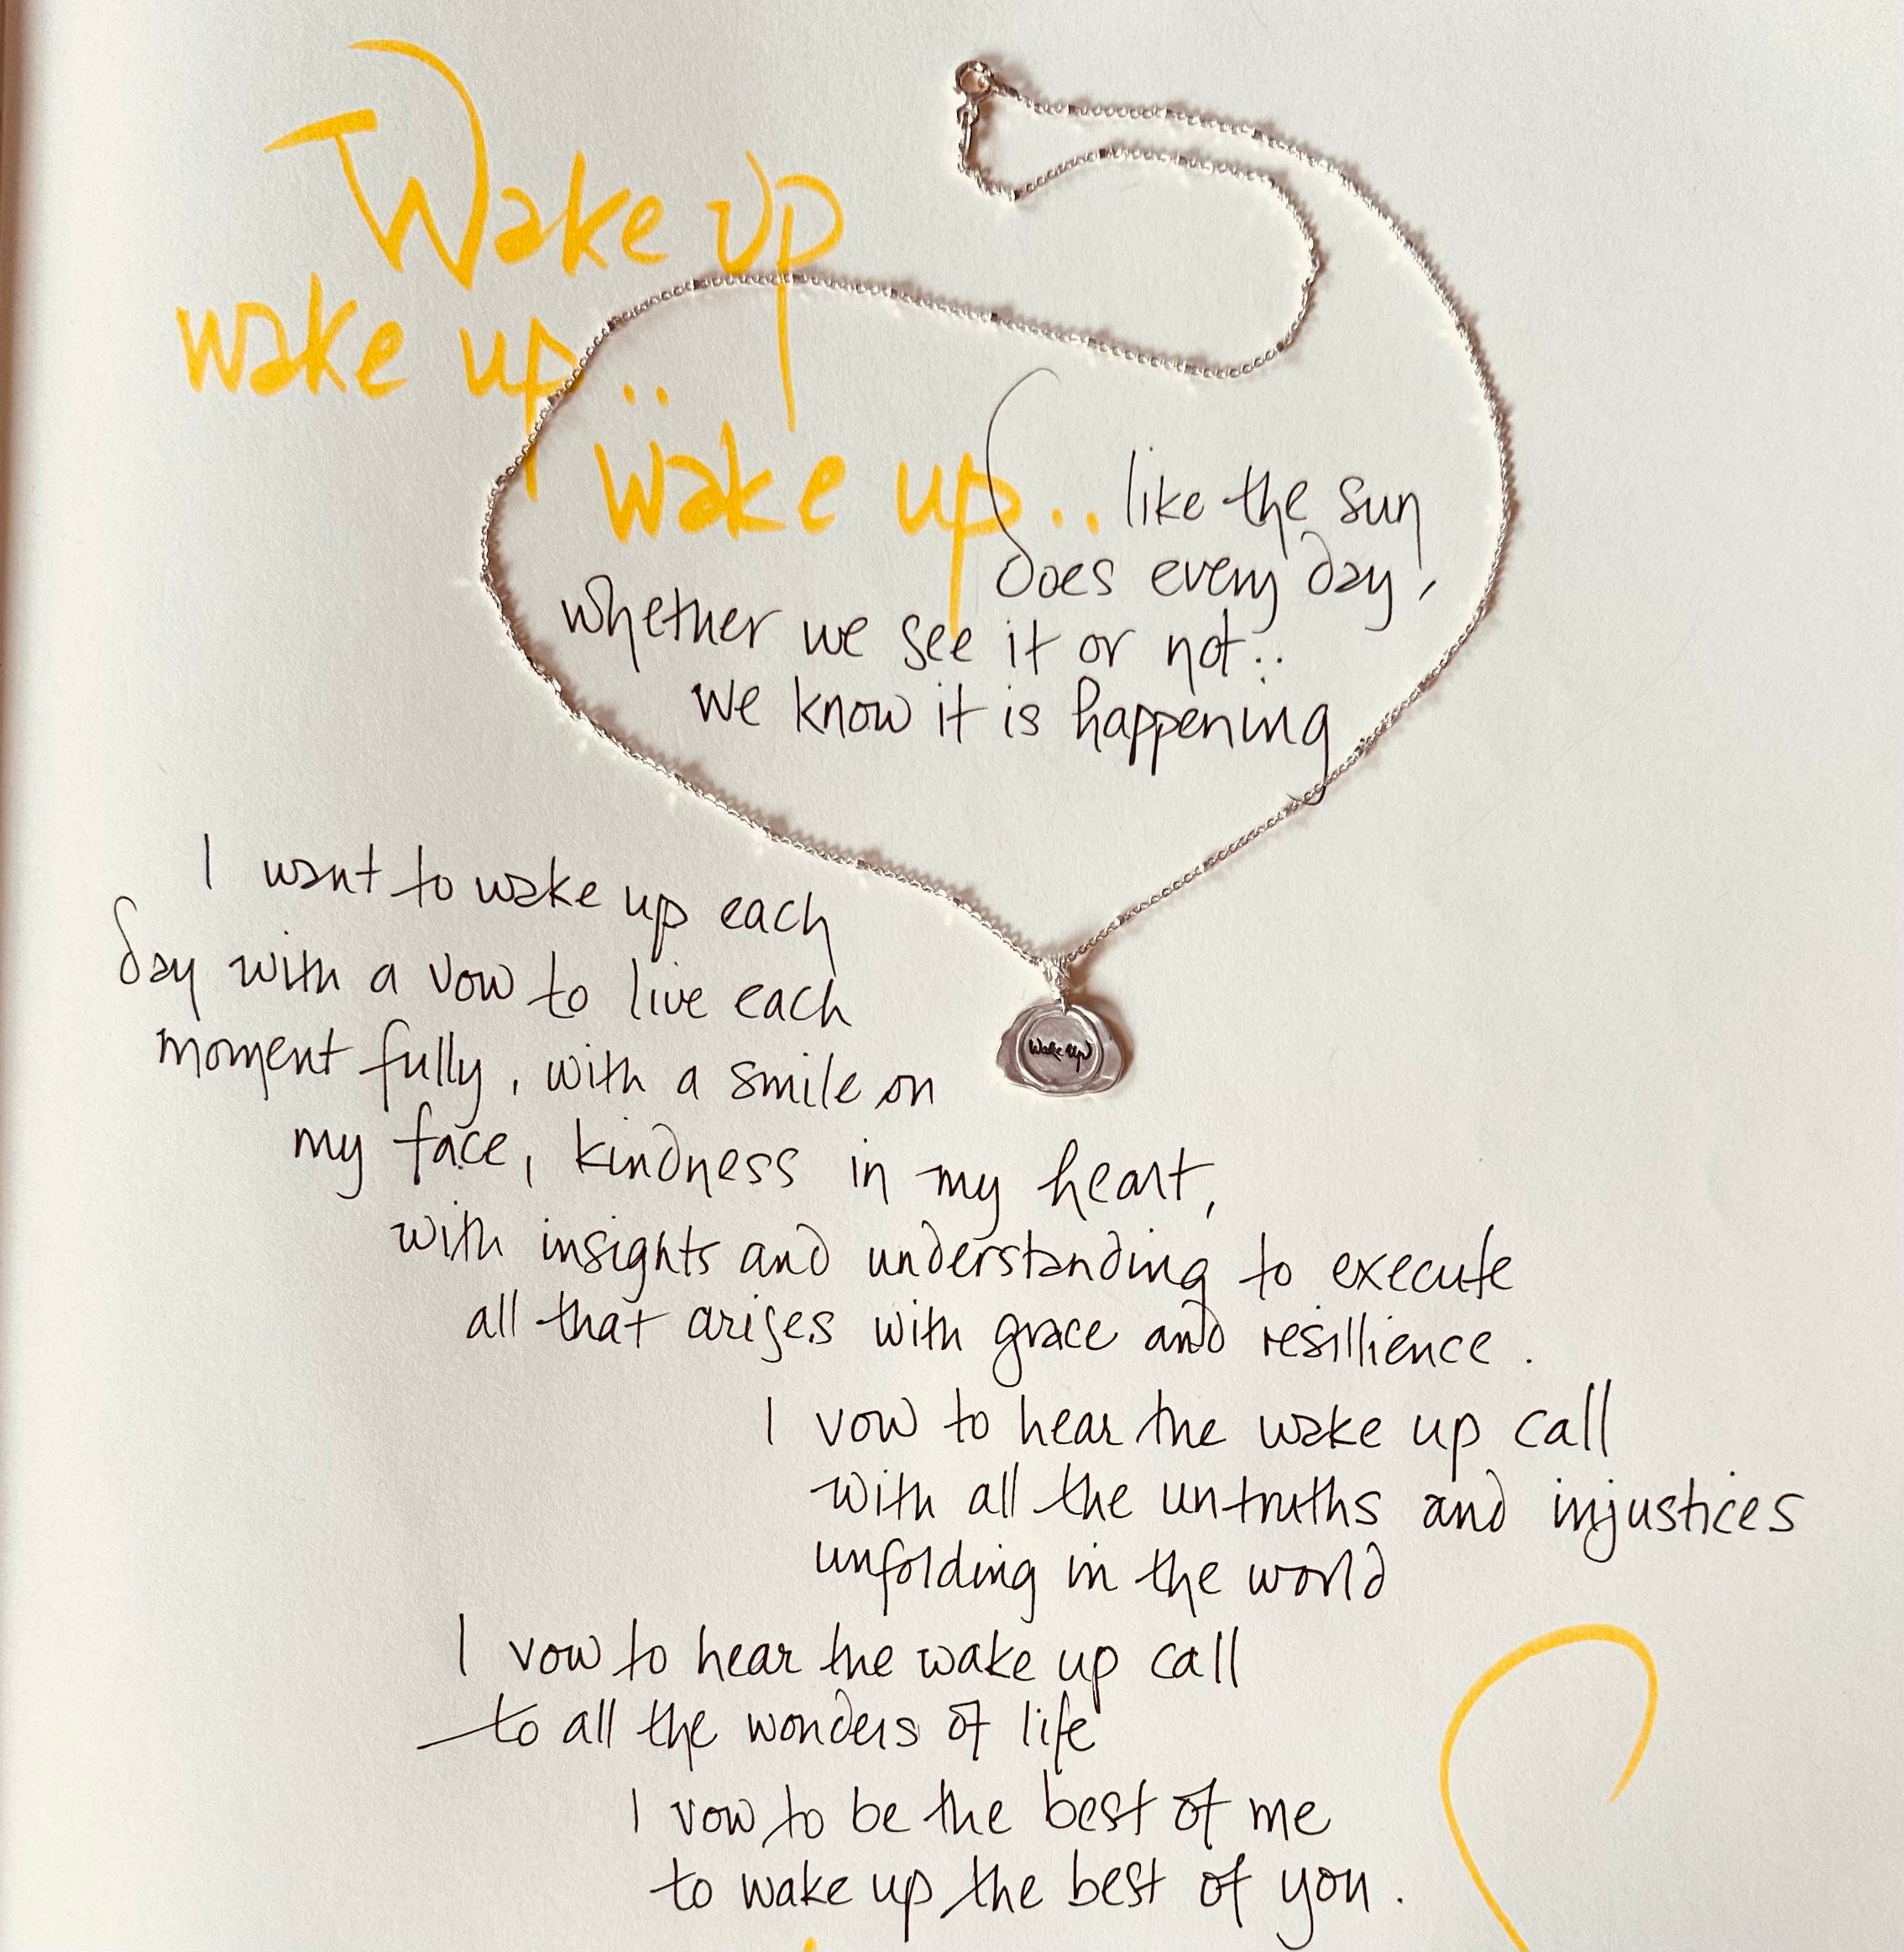 Wake up
wake up ..
wake up .. like the sun
does every day,
whether we see it or not..
we know it is happening
I want to wake up each
day with a vow to live each
moment fully, with a smile on
my face, kindness in my heart,
with insights and understanding to execute
all that arises with grace and resillience.
I vow to hear the wake up call
with all the untruths and injustices
unfolding in the world
I vow to hear the wake up call
to all the wonders of life
I vow to be the best of me
to wake up the best of you.
Wake Up